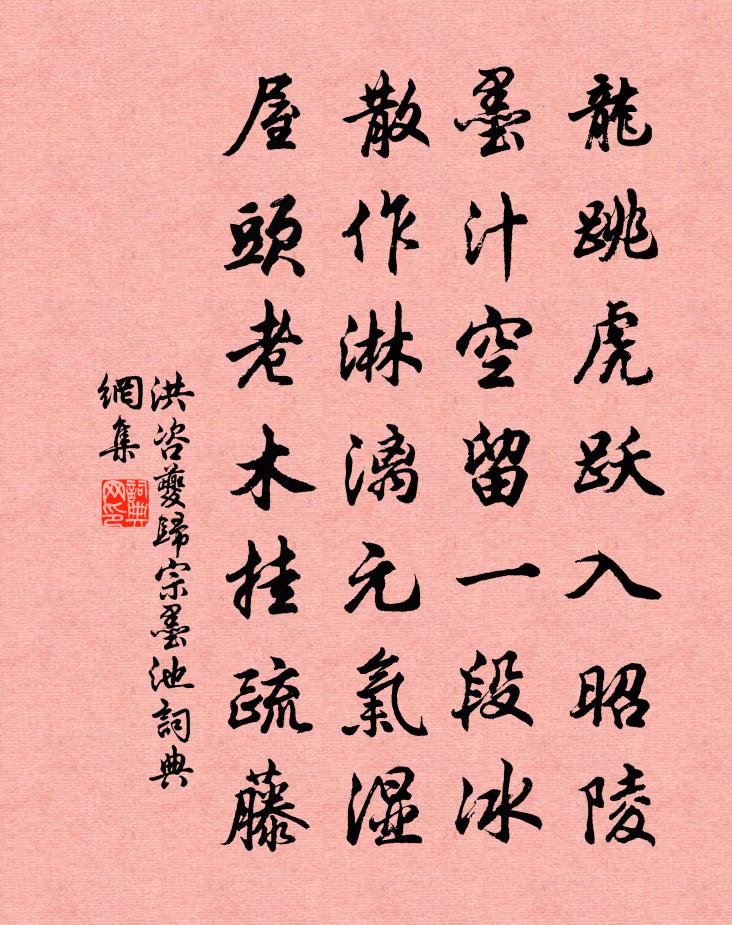 龍跳虎跃入昭陵
墨汁空留一段冰
散作淋漓元氣湿
屋頭老木挂疏藤
洪咨夔歸宗墨池詞典
網集
詞典
网印